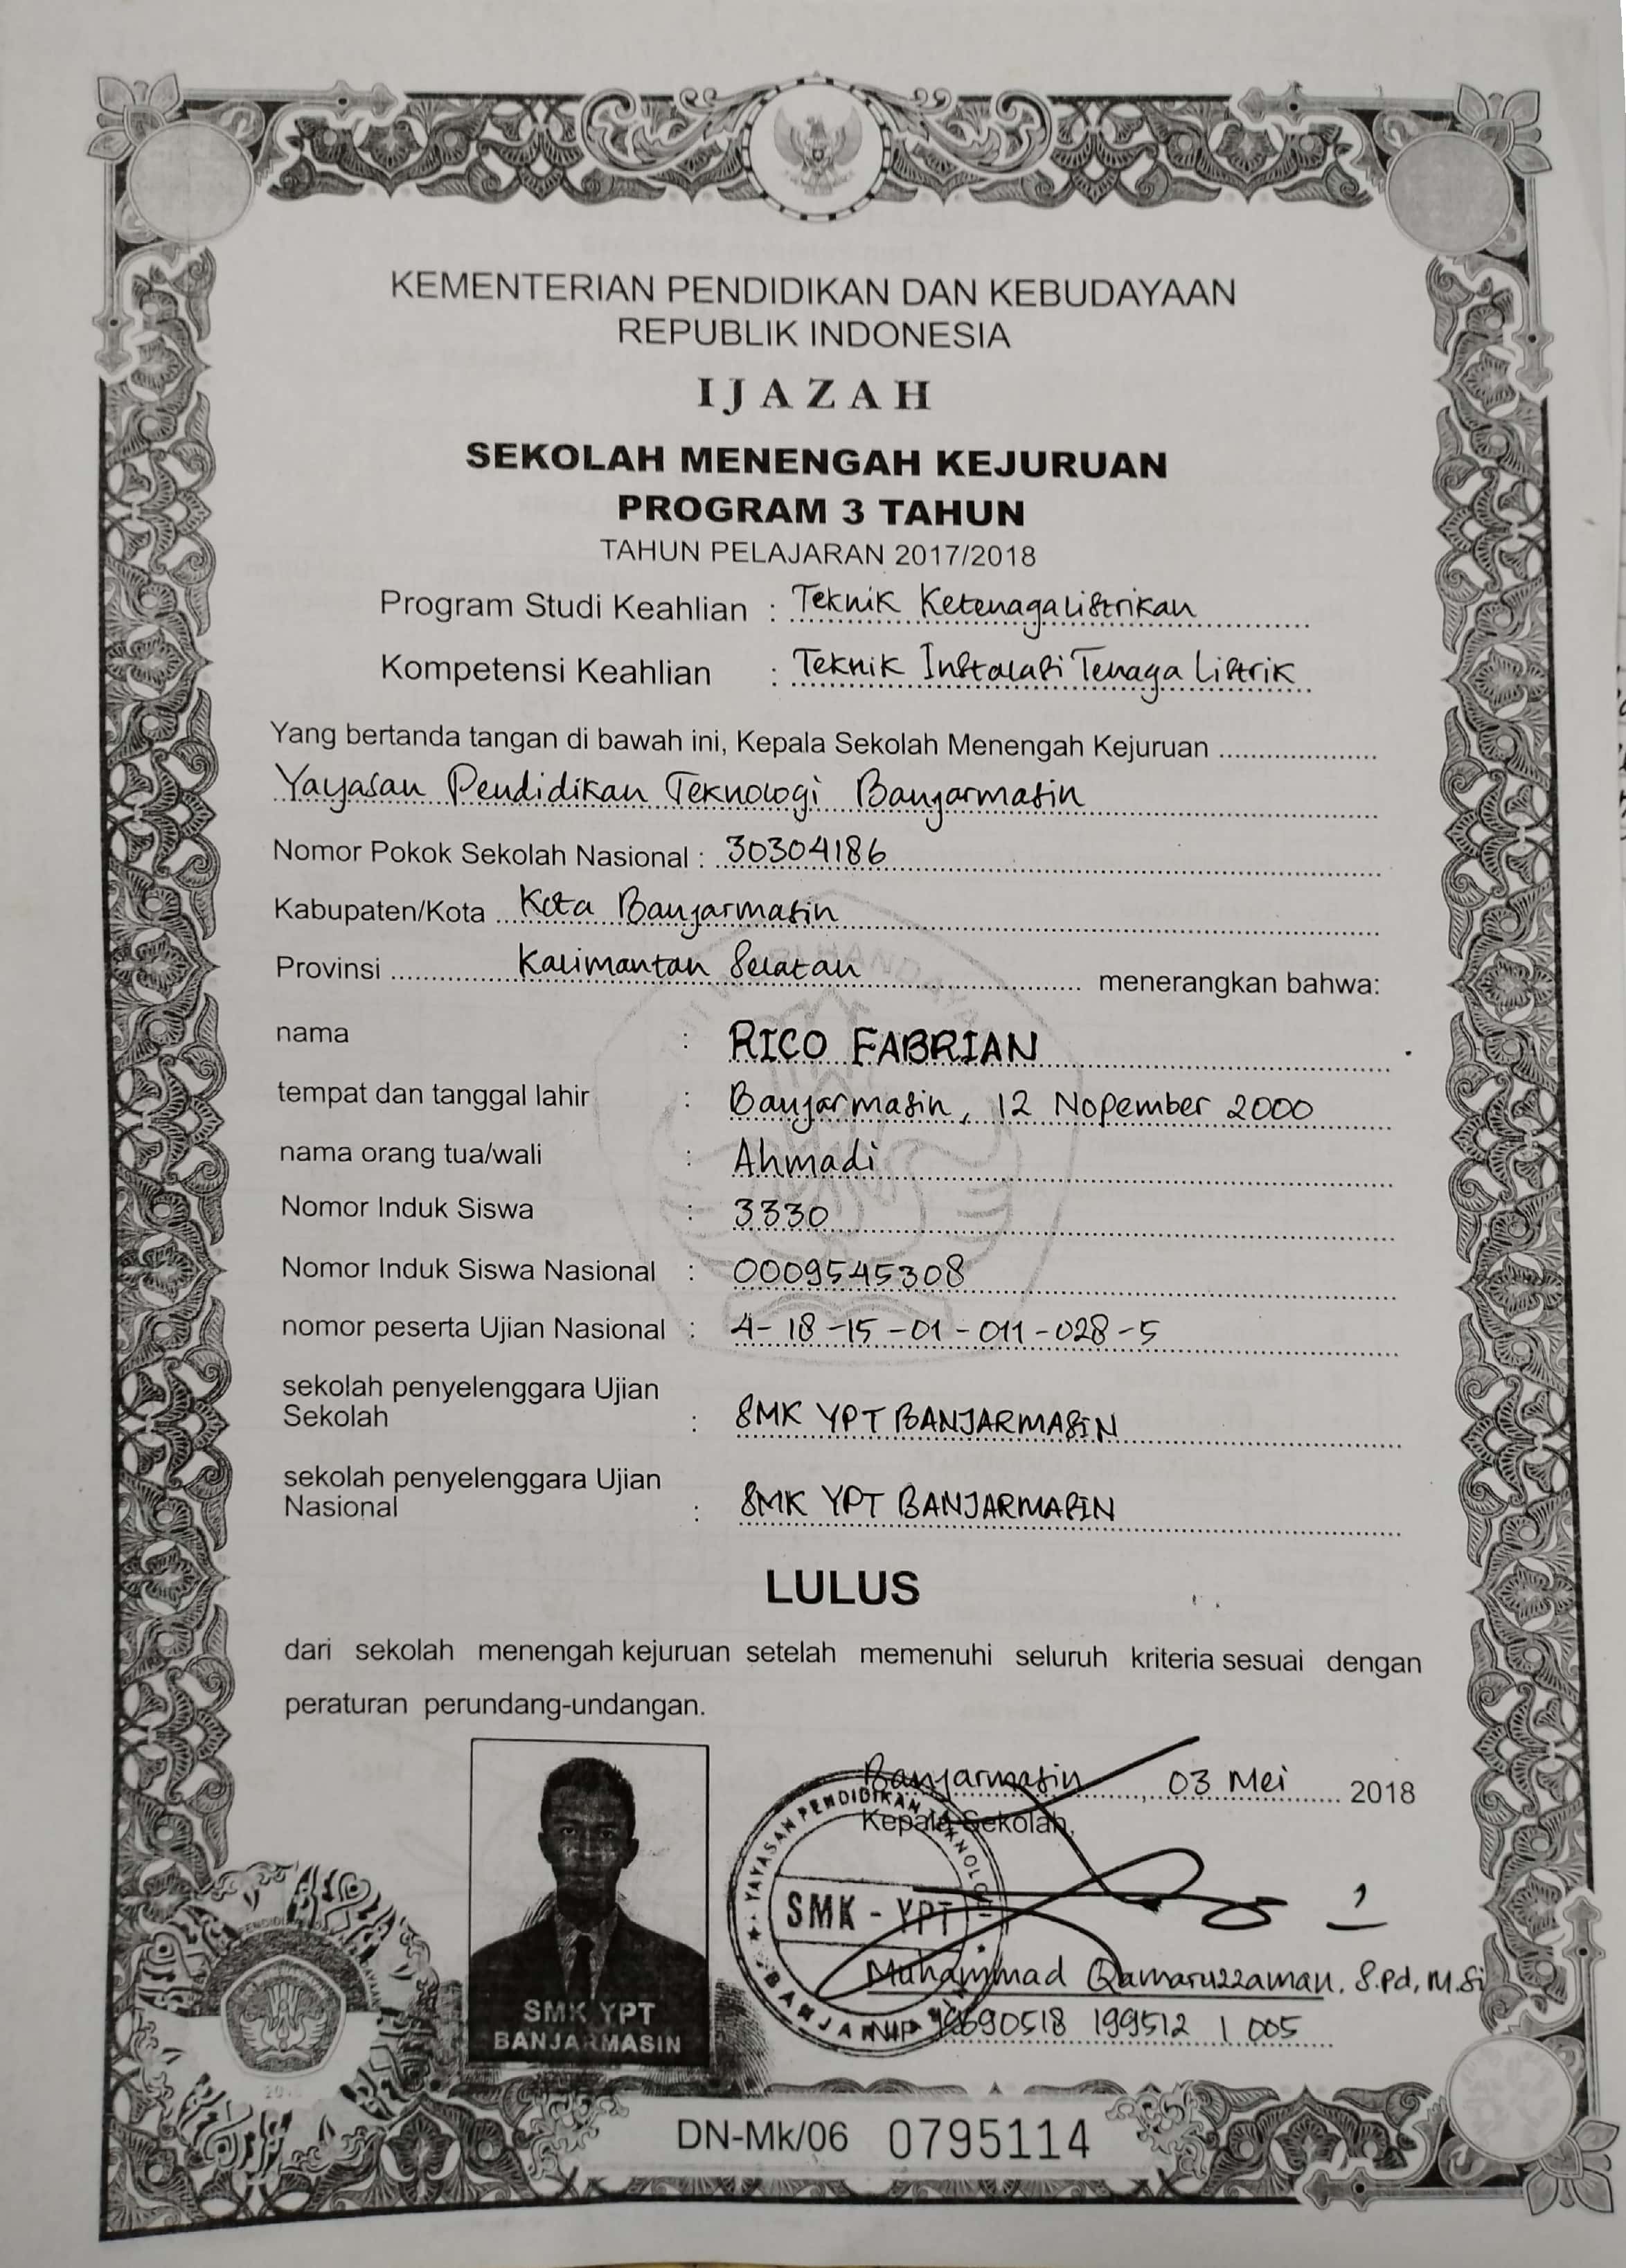 KEMENTERIAN PENDIDIKAN DAN KEBUDAYAAN
REPUBLIK INDONESIA
IJAZAH
SEKOLAH MENENGAH KEJURUAN
PROGRAM 3 TAHUN
TAHUN PELAJARAN 2017/2018
Program Studi Keahlian : Teknik Ketenagalistrikan
Kompetensi Keahlian : Teknik Instalasi Tenaga Listrik
Yang bertanda tangan di bawah ini, Kepala Sekolah Menengah Kejuruan
Yayasan Pendidikan Teknologi Banjarmasin
Nomor Pokok Sekolah Nasional : 30304186
Kabupaten/Kota Kota Banjarmasin
Provinsi Kalimantan Selatan menerangkan bahwa:
nama : RICO FABRIAN
tempat dan tanggal lahir : Banjarmasin, 12 Nopember 2000
nama orang tua/wali : Ahmadi
Nomor Induk Siswa : 3330
Nomor Induk Siswa Nasional : 0009545308
nomor peserta Ujian Nasional : 4-18-15-01-011-028-5
sekolah penyelenggara Ujian
Sekolah : SMK YPT BANJARMASIN
sekolah penyelenggara Ujian
Nasional : SMK YPT BANJARMASIN
LULUS
dari sekolah menengah kejuruan setelah memenuhi seluruh kriteria sesuai dengan
peraturan perundang-undangan.
Banjarmasin, 03 Mei 2018
Kepala Sekolah,
YAYASAN PENDIDIKAN TEKNOLOGI
SMK - YPT
Muhammad Qamaruzzaman, S.Pd, M.Si
NIP 19690518 199512 1 005
SMK YPT
BANJARMASIN
DN-Mk/06 0795114